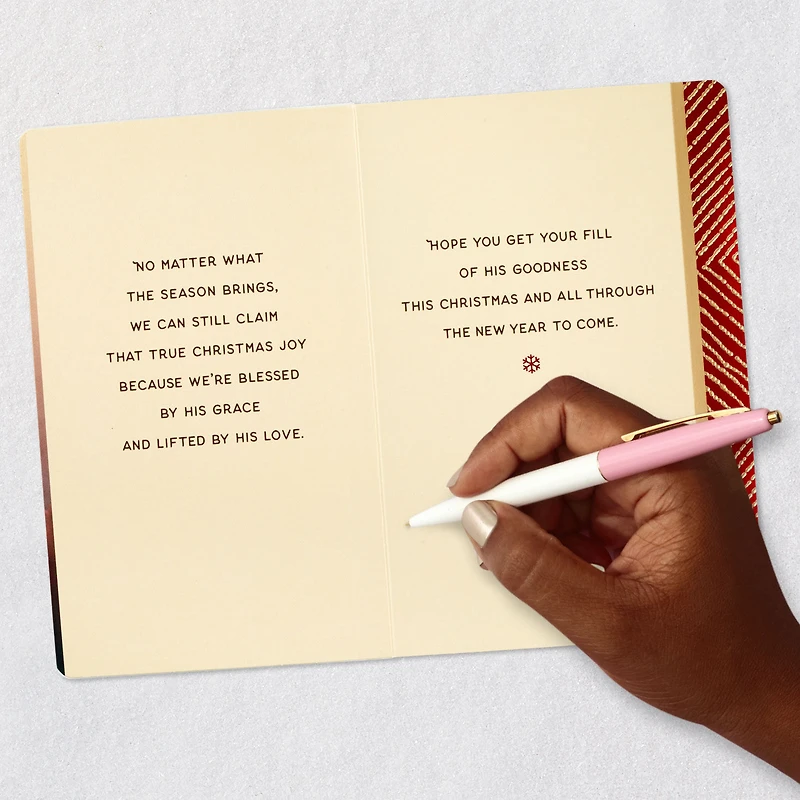 NO MATTER WHAT
THE SEASON BRINGS,
WE CAN STILL CLAIM
THAT TRUE CHRISTMAS JOY
BECAUSE WE'RE BLESSED
BY HIS GRACE
AND LIFTED BY HIS LOVE.
HOPE YOU GET YOUR FILL
OF HIS GOODNESS
THIS CHRISTMAS AND ALL THROUGH
THE NEW YEAR TO COME.